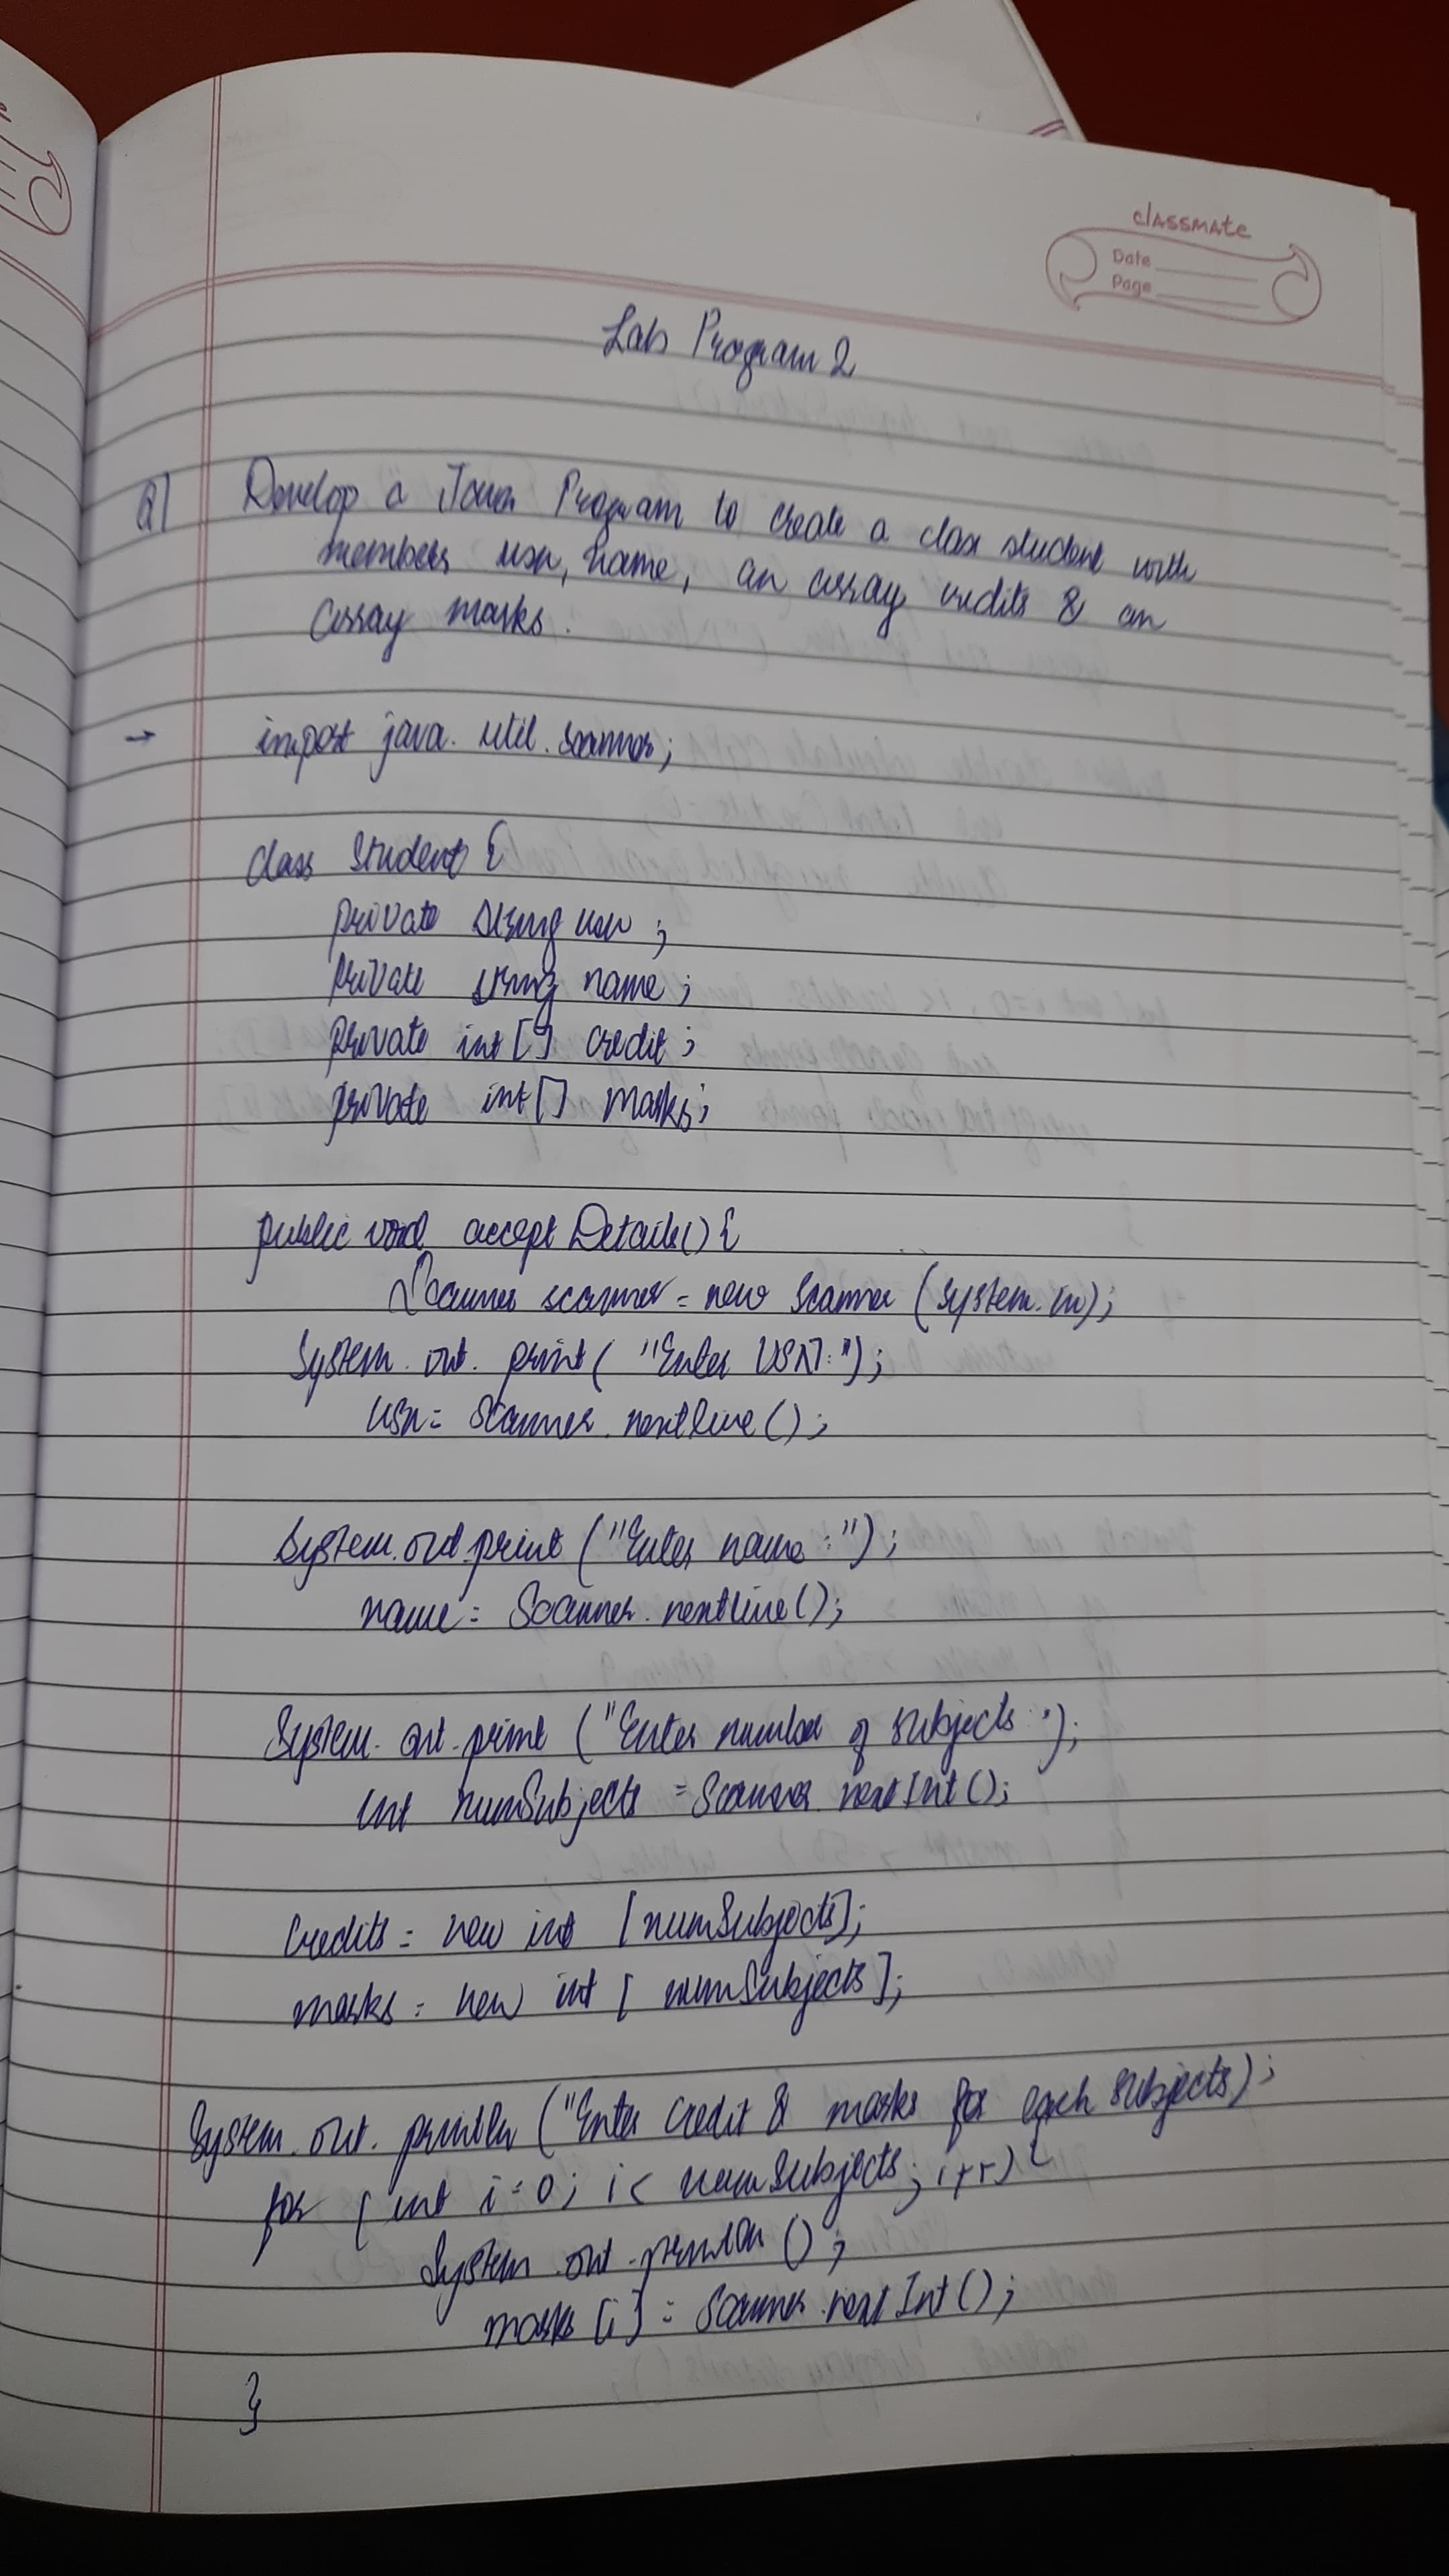 classmate
Date
Page
Lab Program 2
Q) Develop a Java Program to create a class student with
members usn, name, an array credits & an
array marks.
→ import java.util.scanner;
class Student {
private String usn;
private string name;
private int[] credit;
private int[] marks;
public void accept Details() {
Scanner scanner = new Scanner (system.in);
System.out.print( "Enter USN:");
usn = Scanner.nextline();
System.out.print ("Enter name:");
name = Scanner.nextline();
System.out.print ("Enter number of subjects:");
int numSubjects = Scanner.nextInt();
Credits = new int [numSubjects];
marks = new int [numSubjects];
System.out.println ("Enter credit & marks for each subjects);
for (int i=0; i< numSubjects; i++) {
System.out.println ();
marks [i] = Scanner.nextInt();
}